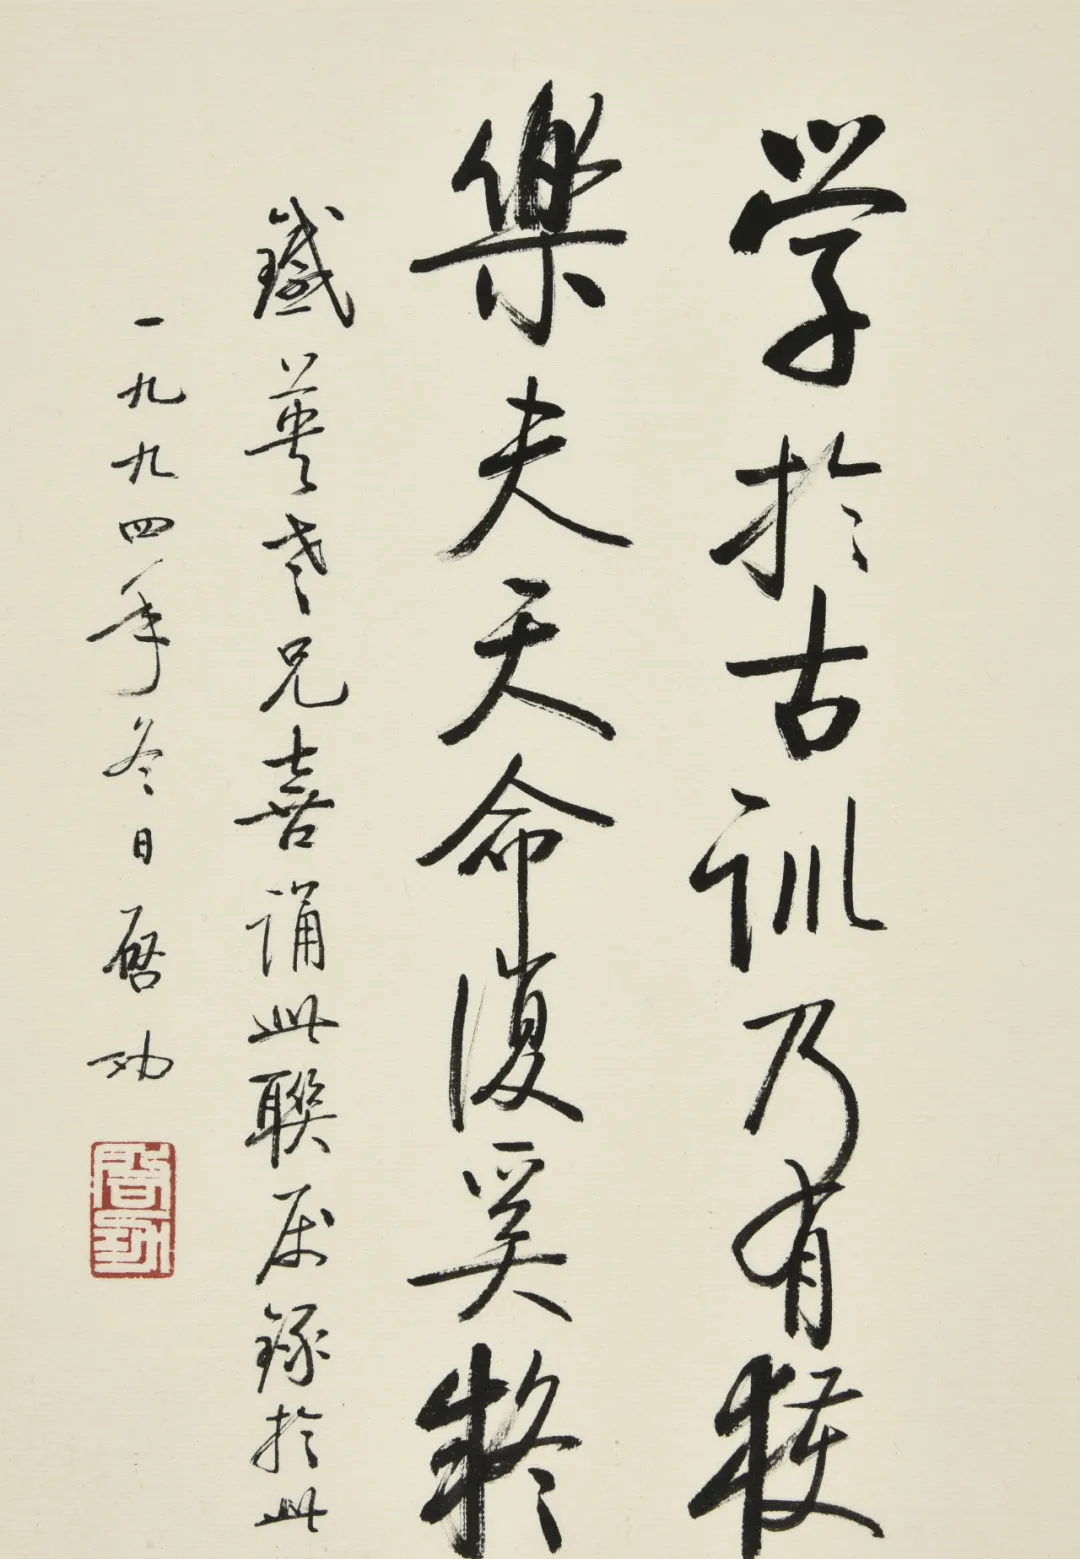 学於古訓乃有獲
樂夫天命復奚疑
鐵英老兄喜誦此聯属録於此
一九九四年冬日启功
啓功